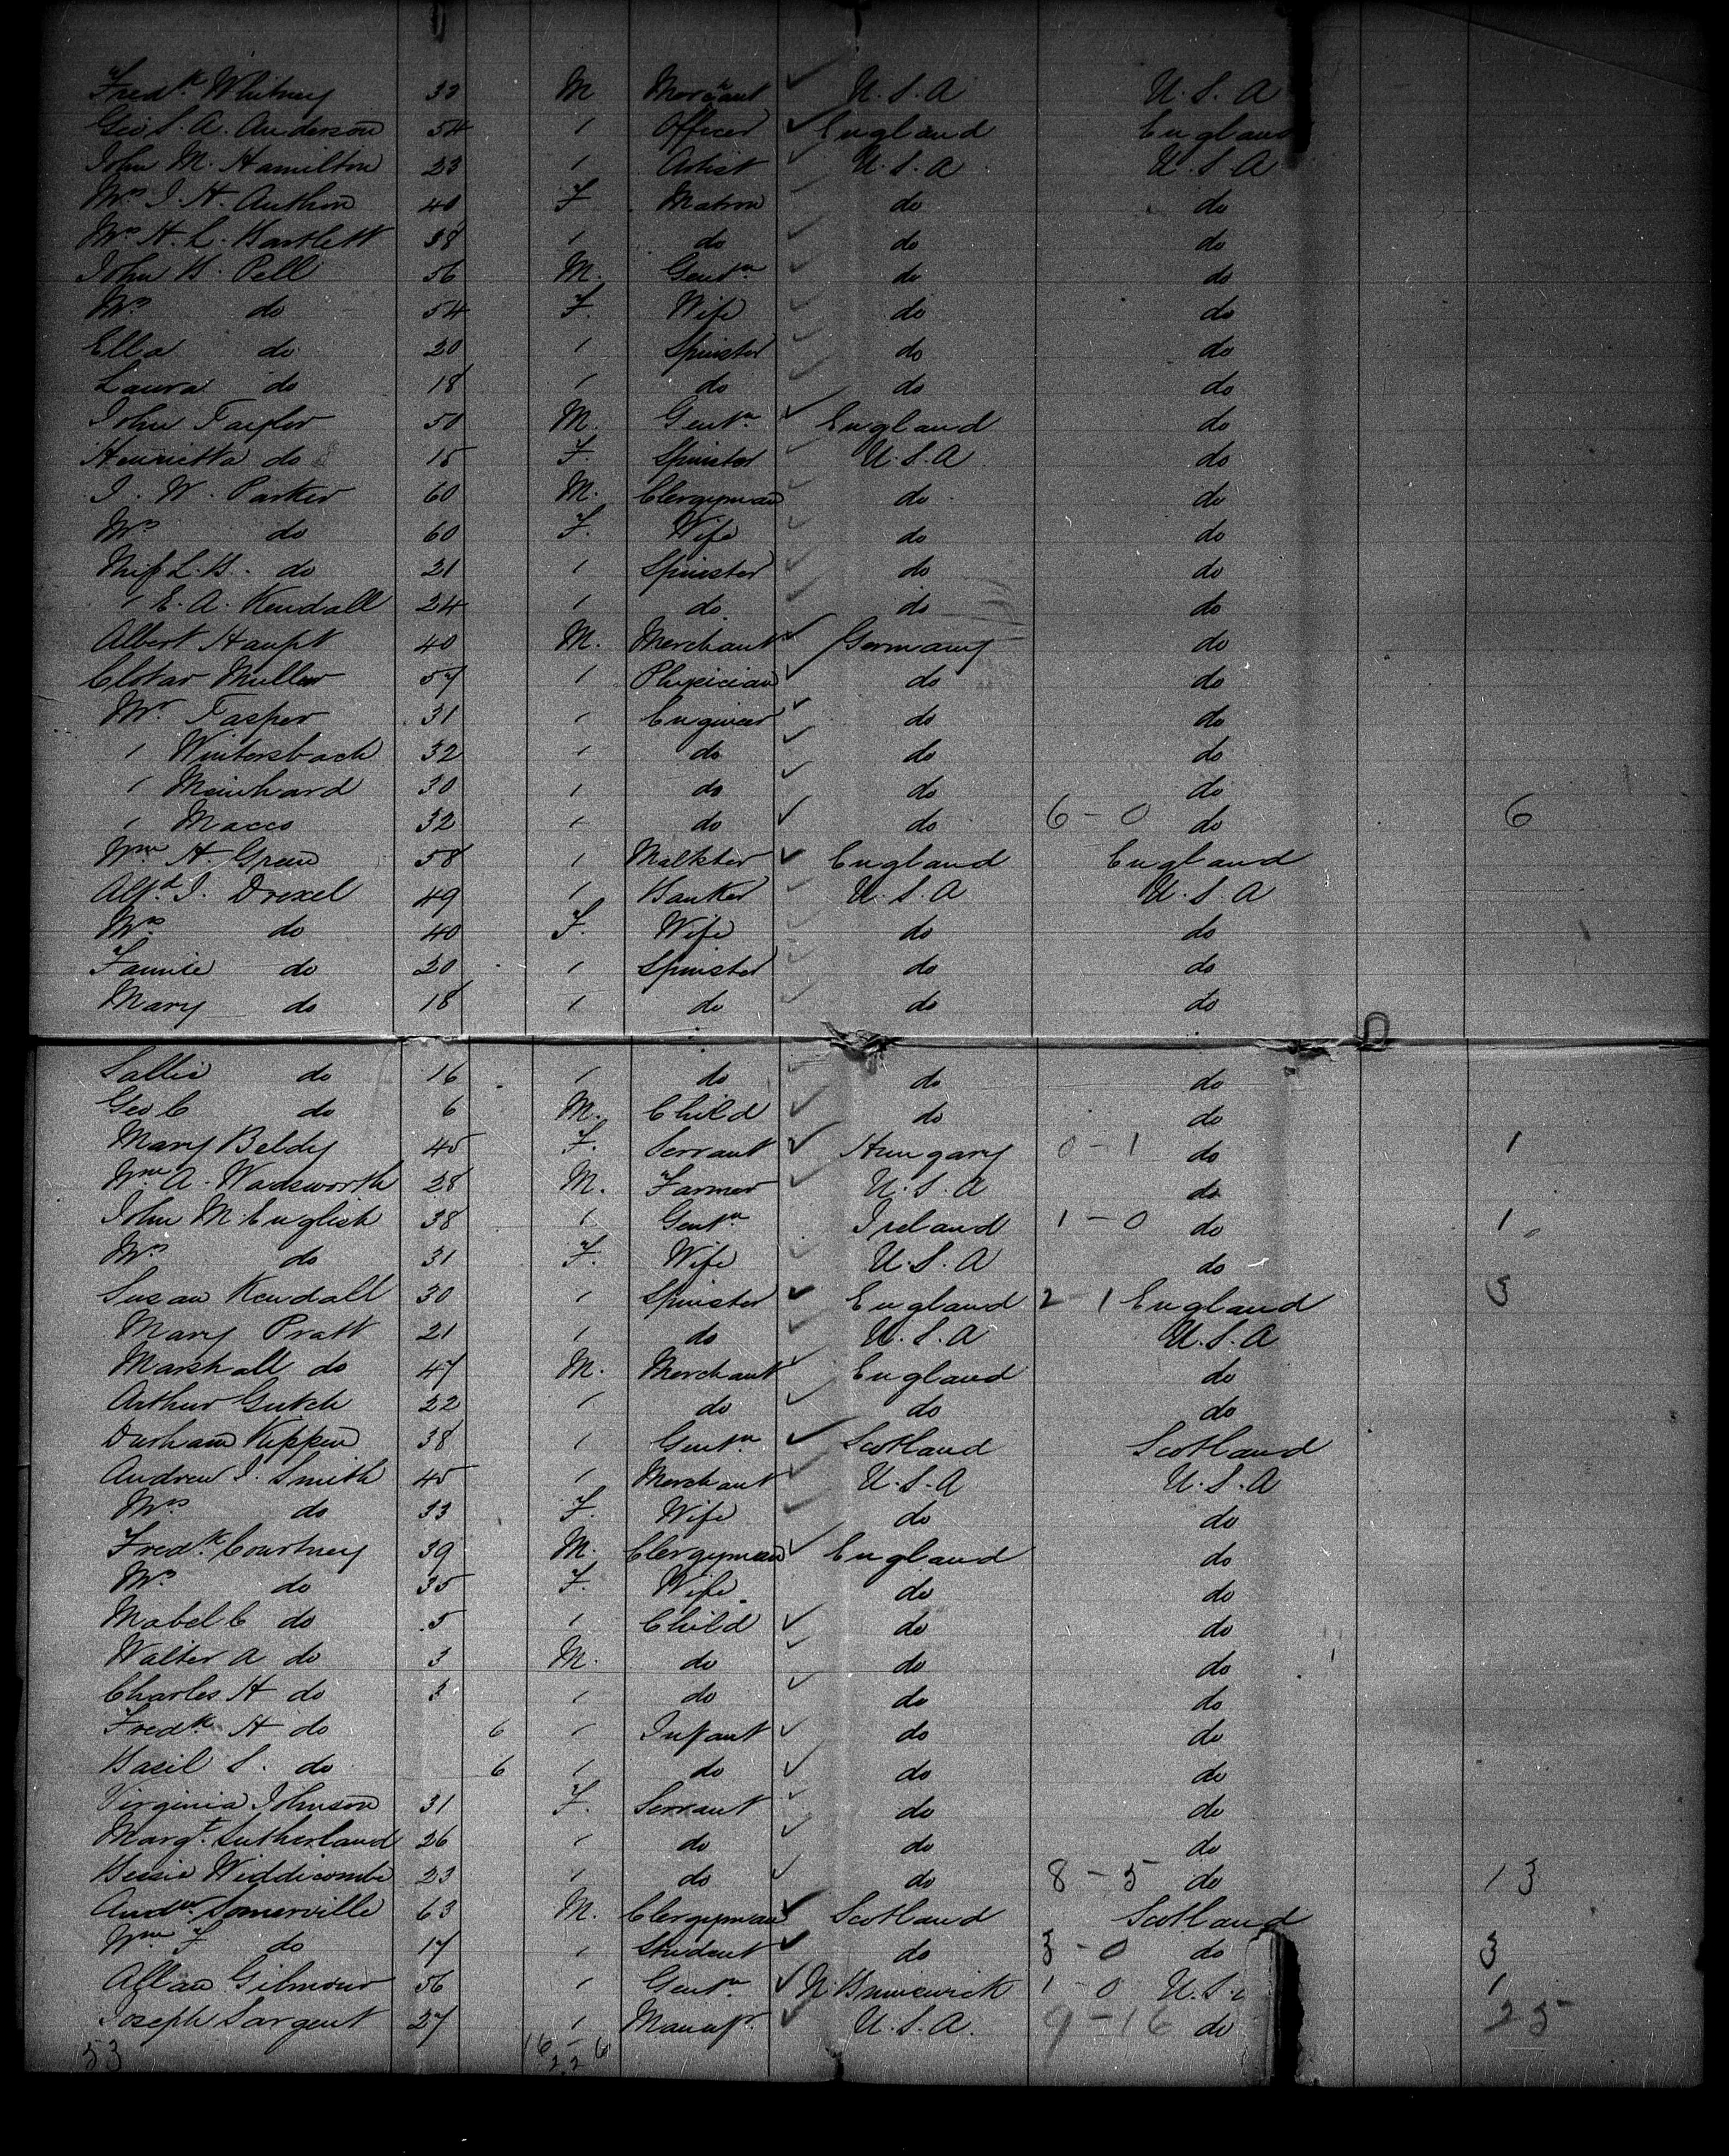 Fredk. Whitney 33 M Merchant U.S.A U.S.A
Geo S. A. Anderson 54 " Officer England England
John M. Hamilton 23 " Artist U.S.A U.S.A
Mrs J. H. Anthon 40 F Matron do do
Mrs H. L. Bartlett 38 " do do do
John B. Pell 56 M. Gentn do do
Mrs do 54 F. Wife do do
Ella do 20 " Spinster do do
Laura do 18 " do do do
John Taylor 50 M. Gentn England do
Henrietta do 15 F. Spinster U.S.A do
J. W. Parker 60 M. Clergyman do do
Mrs do 60 F. Wife do do
Miss L. B. do 21 " Spinster do do
" E. A. Kendall 24 " do do do
Albert Haupt 40 M. Merchant Germany do
Clotar Muller 57 " Physician do do
Mr. Tasper 31 " Engineer do do
" Wintersbach 32 " do do do
" Meinhard 30 " do do do
" Macco 32 " do do 6-0 do 6
Wm H. Green 58 " Malkster England England
J. Drexel 49 " Banker U.S.A U.S.A
Mrs do 40 F. Wife do do
Fannie do 20 " Spinster do do
Mary do 18 " do do do
Sallie do 16 " do do do
Geo C do 6 M. Child do do
Mary Beldy 45 F. Servant Hungary 0-1 do 1
Wm A. Wadsworth 28 M. Farmer U.S.A do
John M. English 38 " Gentn Ireland 1-0 do 1
Mrs do 31 F. Wife U.S.A do
Susan Kendall 30 " Spinster England 2-1 England 3
Mary Pratt 21 " do U.S.A U.S.A
Marshall do 47 M. Merchant England do
Arthur Gutch 22 " do do do
Durham Kippen 38 " Gentn Scotland Scotland
Andrew J. Smith 45 " Merchant U.S.A U.S.A
Mrs do 33 F. Wife do do
Fredk. Courtney 39 M. Clergyman England do
Mrs do 35 F. Wife do do
Mabel C do 5 " Child do do
Walter A do 3 M. do do do
Charles H do 3 " do do do
Fredk H do 6 " Infant do do
Basil S. do 6 " do do do
Virginia Johnson 31 F. Servant do do
Margt. Sutherland 26 " do do do
Bessie Widdicombe 23 " do do 8-5 do 13
Andw Somerville 63 M. Clergyman Scotland Scotland
Wm F do 17 " Student do 3-0 do 3
Allan Gilmour 56 " Gentn N Brunswick 1-0 U.S. 1
Joseph Sargent 27 " Manufr. U.S.A. 9-16 do 25
53 16-6 22